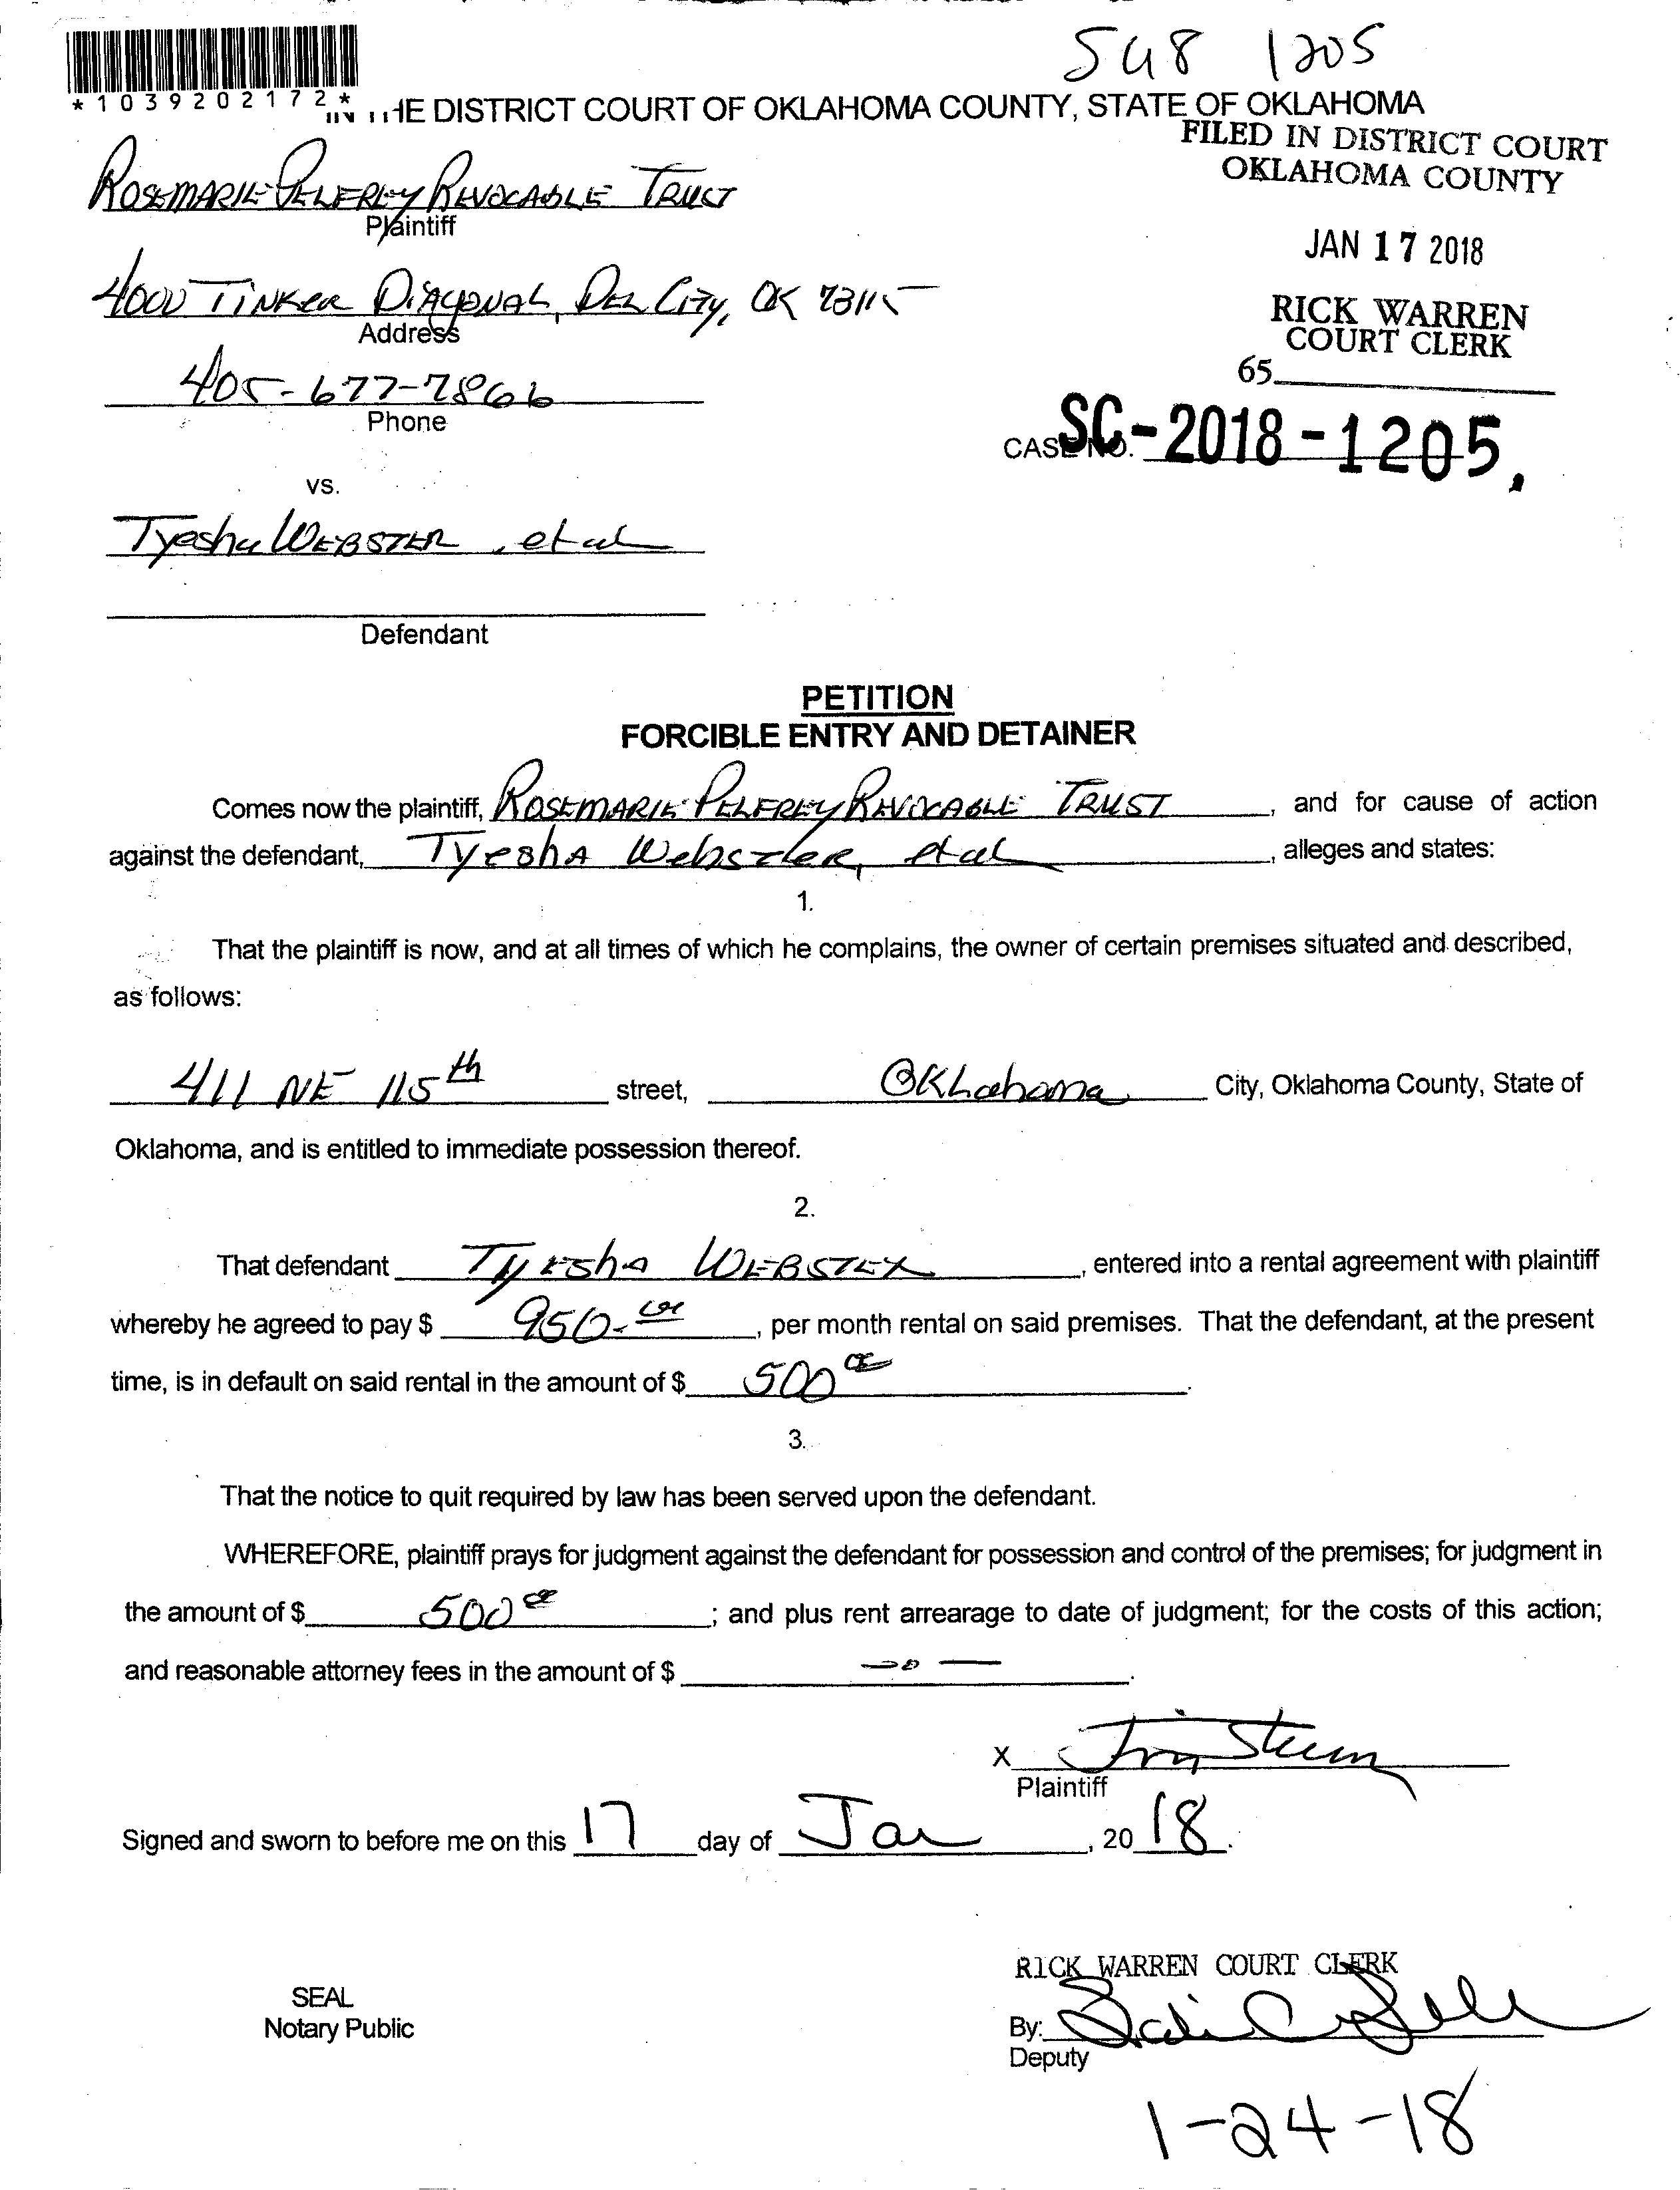 SC18 1205
*1039202172*
IN THE DISTRICT COURT OF OKLAHOMA COUNTY, STATE OF OKLAHOMA
FILED IN DISTRICT COURT
OKLAHOMA COUNTY
ROSEMARIE PELFREY REVOCABLE TRUST
Plaintiff
JAN 17 2018
4000 TINKER DIAGONAL, DEL CITY, OK 73115
Address
RICK WARREN
COURT CLERK
65
405-677-7866
Phone
CASE NO. SC-2018-1205
vs.
Tyesha WEBSTER, et al
Defendant
PETITION
FORCIBLE ENTRY AND DETAINER
Comes now the plaintiff, ROSEMARIE PELFREY REVOCABLE TRUST, and for cause of action
against the defendant, Tyesha Webster, et al, alleges and states:
1.
That the plaintiff is now, and at all times of which he complains, the owner of certain premises situated and described,
as follows:
411 NE 115th street, Oklahoma City, Oklahoma County, State of
Oklahoma, and is entitled to immediate possession thereof.
2.
That defendant Tyesha WEBSTER, entered into a rental agreement with plaintiff
whereby he agreed to pay $ 950.00, per month rental on said premises. That the defendant, at the present
time, is in default on said rental in the amount of $ 500 00.
3.
That the notice to quit required by law has been served upon the defendant.
WHEREFORE, plaintiff prays for judgment against the defendant for possession and control of the premises; for judgment in
the amount of $ 500 00; and plus rent arrearage to date of judgment; for the costs of this action;
and reasonable attorney fees in the amount of $ -0-.
X
Plaintiff
Signed and sworn to before me on this 17 day of Jan, 20 18.
RICK WARREN COURT CLERK
SEAL
Notary Public
By:
Deputy
1-24-18